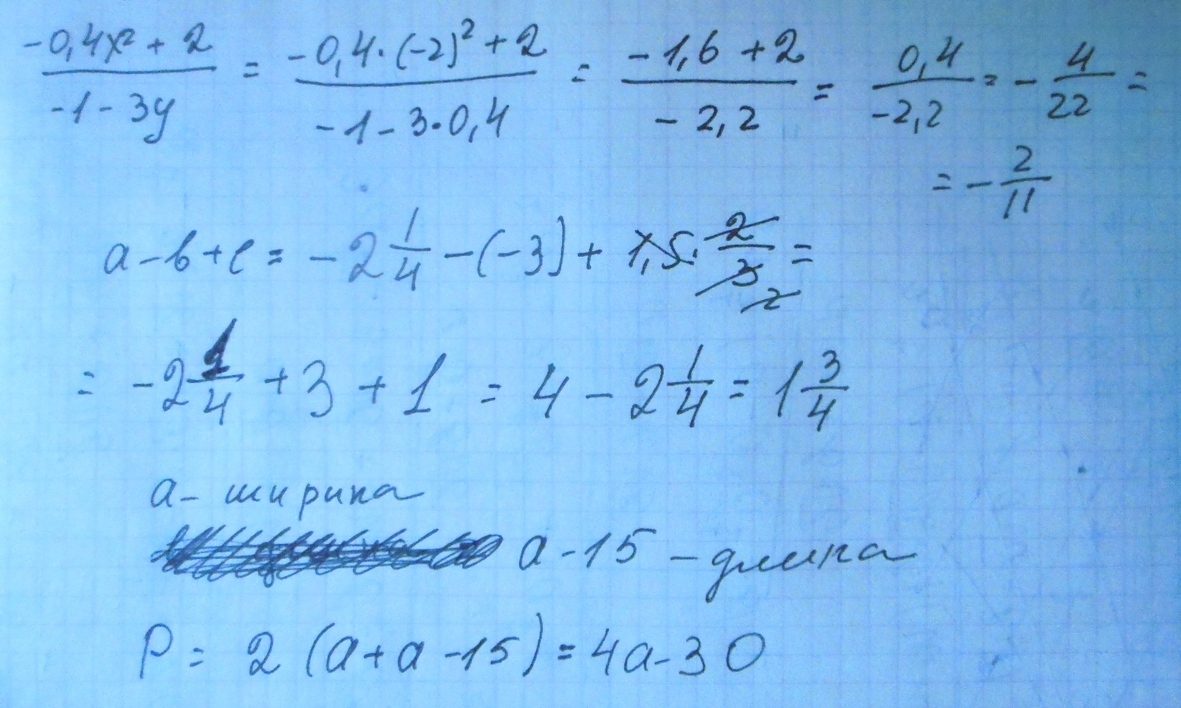 (-0,4x² + 2)/(-1 - 3y) = (-0,4·(-2)² + 2)/(-1 - 3·0,4) = (-1,6 + 2)/(-2,2) = 0,4/(-2,2) = - 4/22 =
= - 2/11
a - b + c = - 2 1/4 - (-3) + 1,5 · 2/3 =
= - 2 1/4 + 3 + 1 = 4 - 2 1/4 = 1 3/4
a - ширина
a - 15 - длина
P = 2 (a + a - 15) = 4a - 30